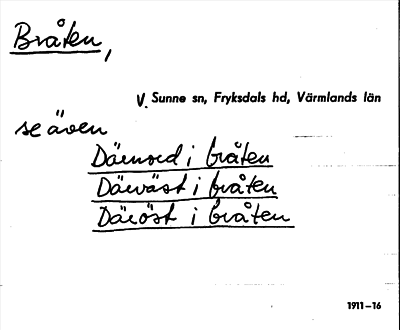 Bråten,
V. Sunne sn, Fryksdals hd, Värmlands län
se även
Därnord i bråten
Därväst i bråten
Däröst i bråten
1911–16